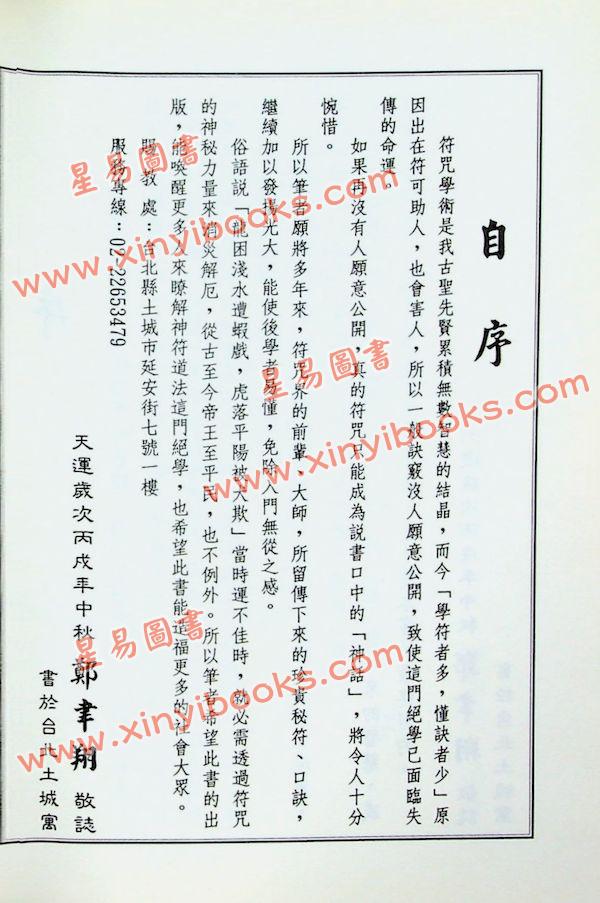 自序
符咒學術是我古聖先賢累積無數智慧的結晶，而今「學符者多，懂訣者少」原
因出在符可助人，也會害人，所以一般訣竅沒人願意公開，致使這門絕學已面臨失
傳的命運。
如果再沒有人願意公開，真的符咒只能成為説書口中的「神話」，將令人十分
惋惜。
所以筆者願將多年來，符咒界的前輩、大師，所留傳下來的珍貴秘符、口訣，
繼續加以發揚光大，能使後學者易懂，免除入門無從之感。
俗語説「龍困淺水遭蝦戲，虎落平陽被犬欺」當時運不佳時，就必需透過符咒
的神秘力量來消災解厄，從古至今帝王至平民，也不例外。所以筆者希望此書的出
版，能喚醒更多人來瞭解神符道法這門絕學，也希望此書能造福更多的社會大眾。
賜教處：台北縣土城市延安街七號一樓
服務專線：02-22653479
天運歲次丙戌年中秋 鄭聿翔 敬誌
書於台北土城寓
星易圖書
www.xinyibooks.com
星易圖書
www.xinyibooks.com
星易圖書
www.xinyibooks.com